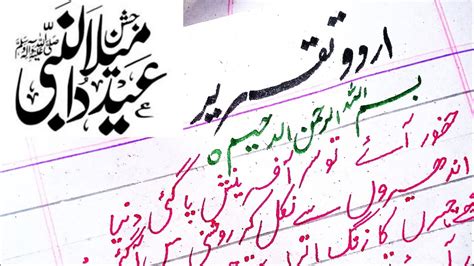 جشن
عید میلادالنبی
صلی اللہ علیہ وآلہ وسلم
اردو تقریر
بسم اللہ الرحمن الرحیم
حضور آئے تو سر آفرینش پا گئی دنیا
اندھیروں سے نکل کر روشنی میں آ گئی
چہروں کا زنگ اترا